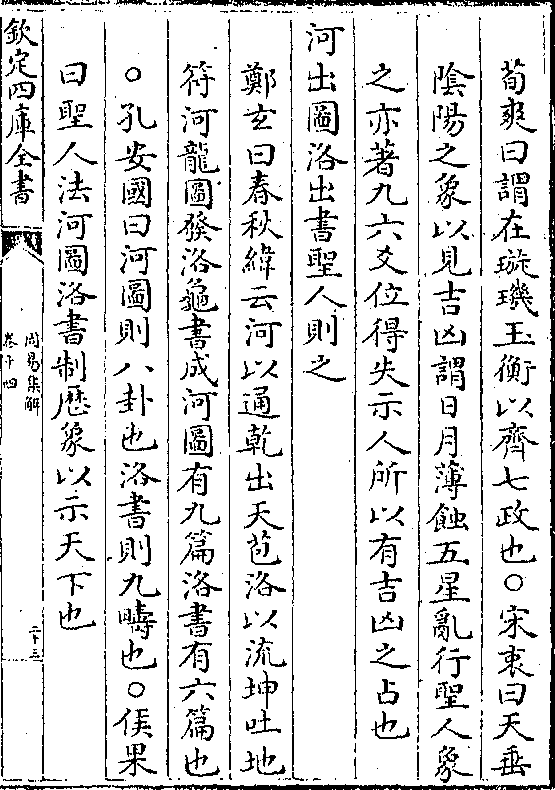 荀爽曰謂在璇璣玉衡以齊七政也○宋衷曰天垂
陰陽之象以見吉凶謂日月薄蝕五星亂行聖人象
之亦著九六爻位得失示人所以有吉凶之占也
河出圖洛出書聖人則之
鄭玄曰春秋緯云河以通乾出天苞洛以流坤吐地
符河龍圖發洛龜書成河圖有九篇洛書有六篇也
○孔安國曰河圖則八卦也洛書則九疇也○侯果
曰聖人法河圖洛書制歷象以示天下也
欽定四庫全書
周易集解
卷十四
二十三